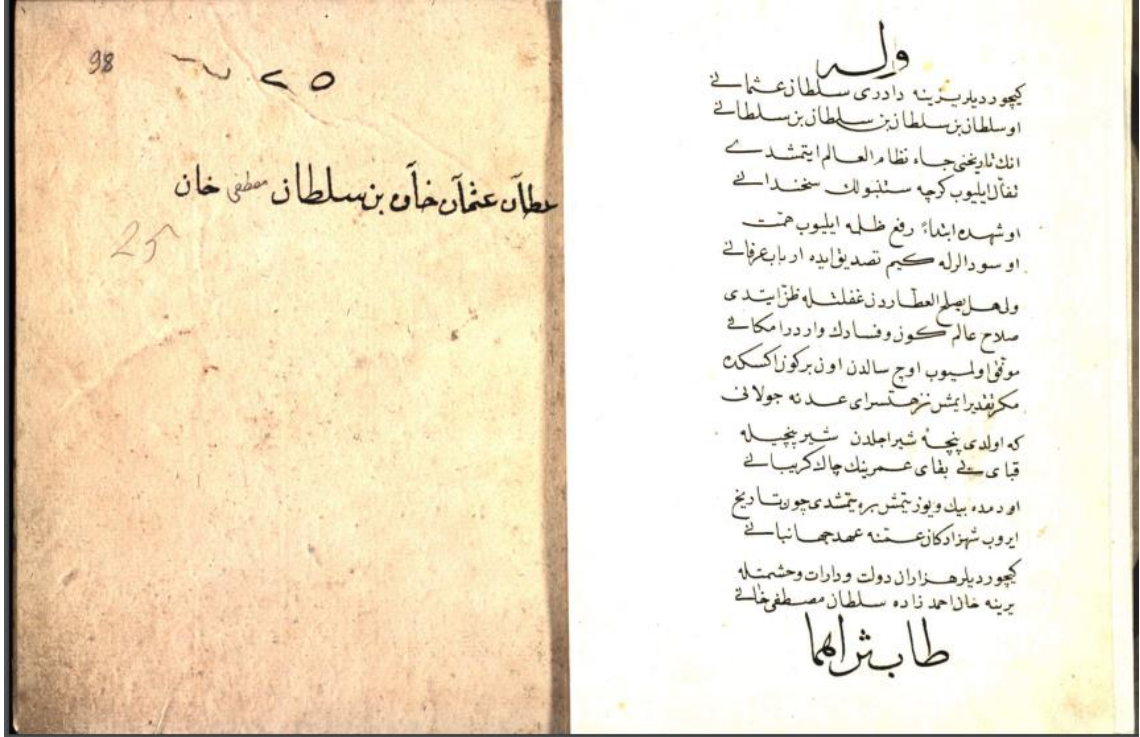 وله
كیچوردیلر یرینه دادری سلطان عثمانی
او سلطان بن سلطان بن سلطان بن سلطانی
انك تاریخنی جاء نظام العالم ایتمشدی
تفأل ایلیوب كرچه ستنبولك سخندانی
او شهده ابتداءً رفع ظلمه ایلیوب همت
او سودالرله كیم تصدیق ایده ارباب عرفانی
ولی هل یصلح العطاردن غفلتله ظن ایتدی
صلاح عالم كون و فسادك واردر امكانی
موفق اولمیوب اوچ سالدن اون بركون اكسكده
مكر تقدیر ایمش نزهتسرای عدنه جولانی
كه اولدی پنچهٔ شیر اجلدن شیرپنچیله
قبای بقای عمرینك چاك كریبانی
او دمده بیك ویوز یتمش بره یتمشدی چون تاریخ
ایروب شهزادكان عتنه عهد جهانبانی
كیچوردیلر هزاران دولت ودارات وحشمتله
یرینه خان احمد زاده سلطان مصطفی خانی
طاب ثراهما
98
٢٥
عثمان خان بن سلطان مصطفی خان
25